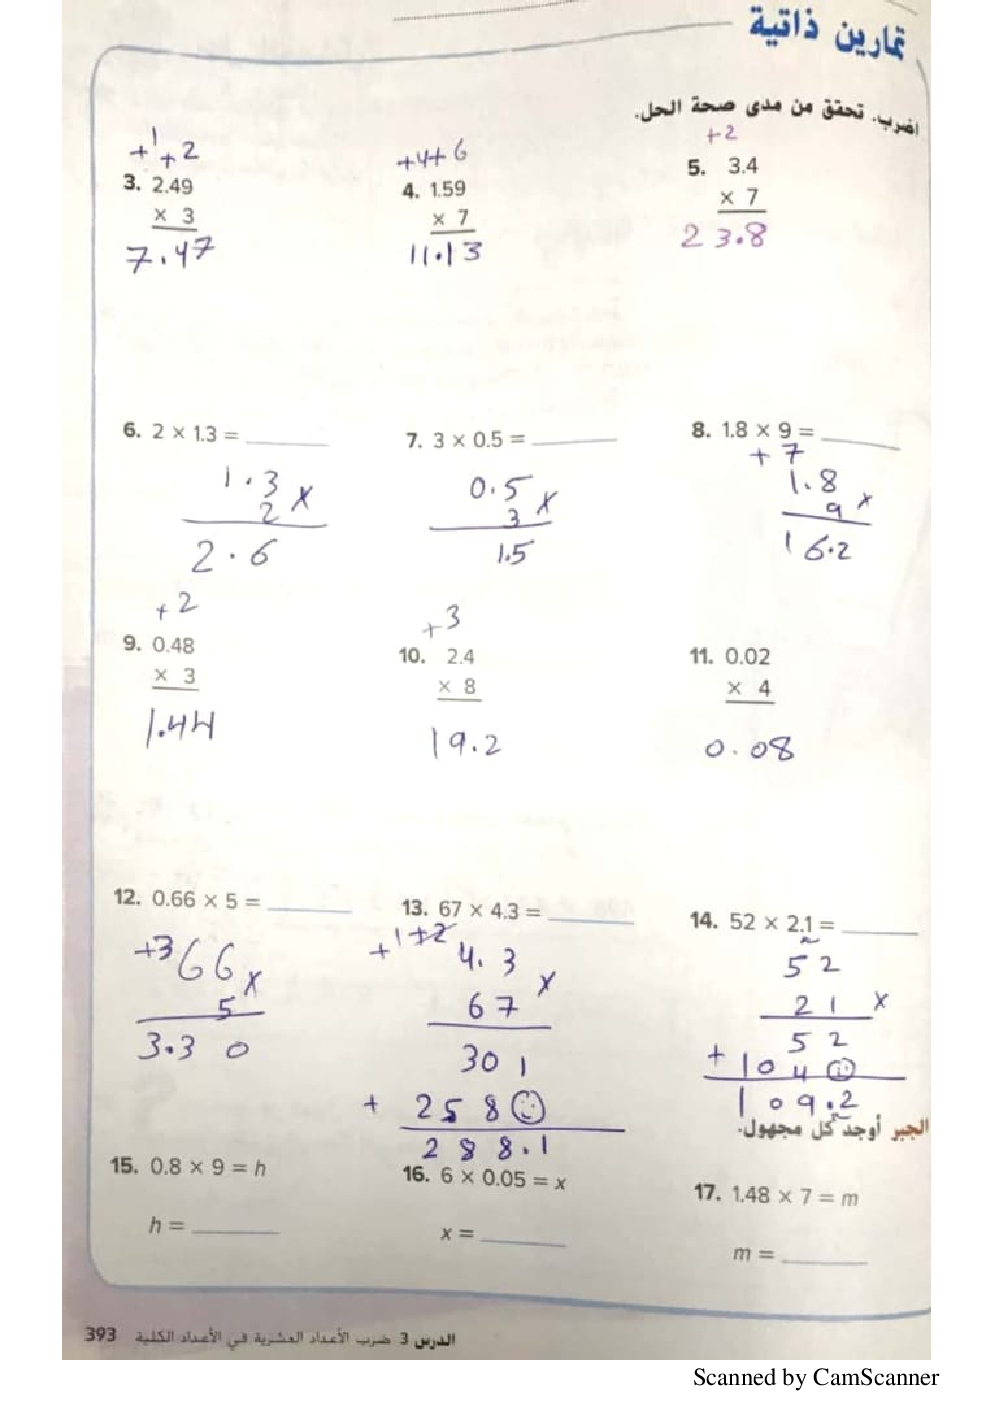 تمارين ذاتية
اضرب. تحقق من مدى صحة الحل.
+1 +2
3. 2.49
× 3
7.47
+4+ 6
4. 1.59
× 7
11.13
+2
5. 3.4
× 7
23.8
6. 2 × 1.3 = ____
1.3 ×
2
2.6
7. 3 × 0.5 = ____
0.5 ×
3
1.5
8. 1.8 × 9 = ____
+7
1.8
9 ×
16.2
+2
9. 0.48
× 3
1.44
+3
10. 2.4
× 8
19.2
11. 0.02
× 4
0.08
12. 0.66 × 5 = ____
+3 66 ×
5
3.30
13. 67 × 4.3 = ____
+1+2
4.3
67 ×
301
+ 258☺
288.1
14. 52 × 2.1 = ____
52
21 ×
52
+ 104☺
109.2
الجبر أوجد كل مجهول.
15. 0.8 × 9 = h
h = ____
16. 6 × 0.05 = x
x = ____
17. 1.48 × 7 = m
m = ____
الدرس 3 ضرب الأعداد العشرية في الأعداد الكلية 393
Scanned by CamScanner